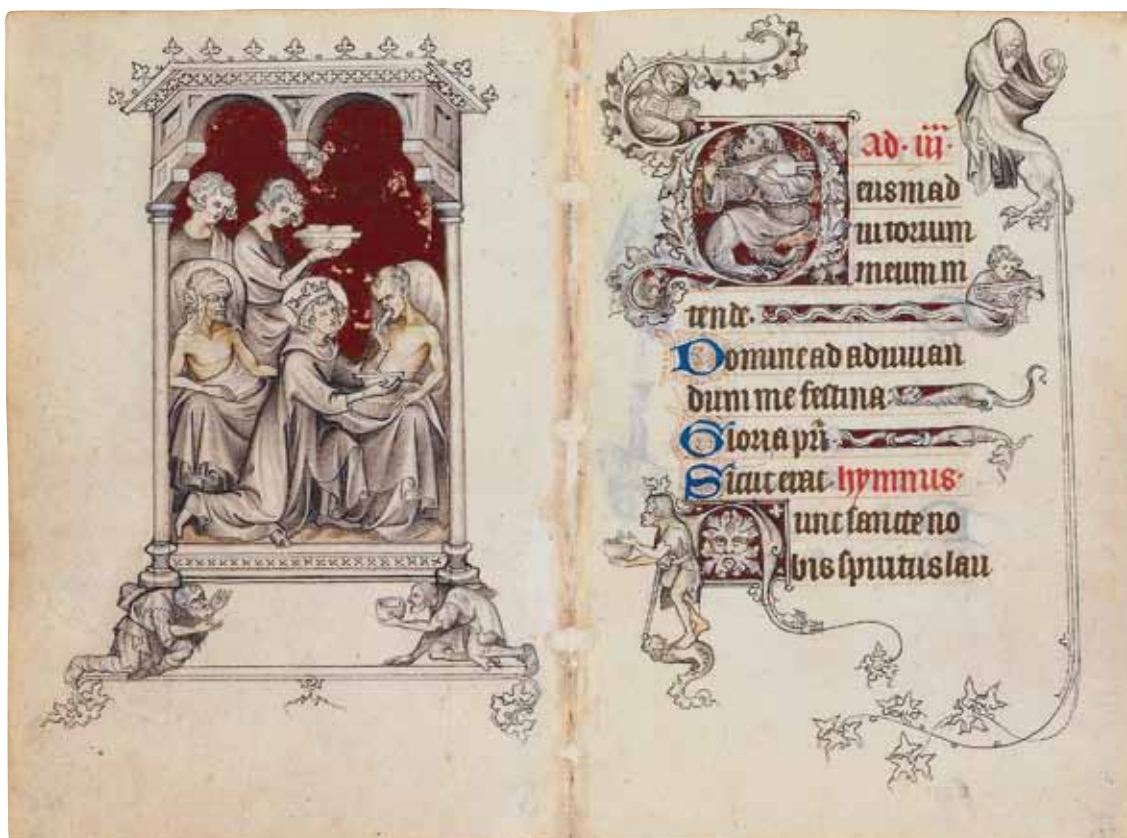 Ad. iij.
Deus in ad
iutorium
meum in
tende.
Domine ad adiuuan
dum me festina
Gloria pr̄i
Sicut erat. hymnus.
Nunc sancte no
bis spiritus lau